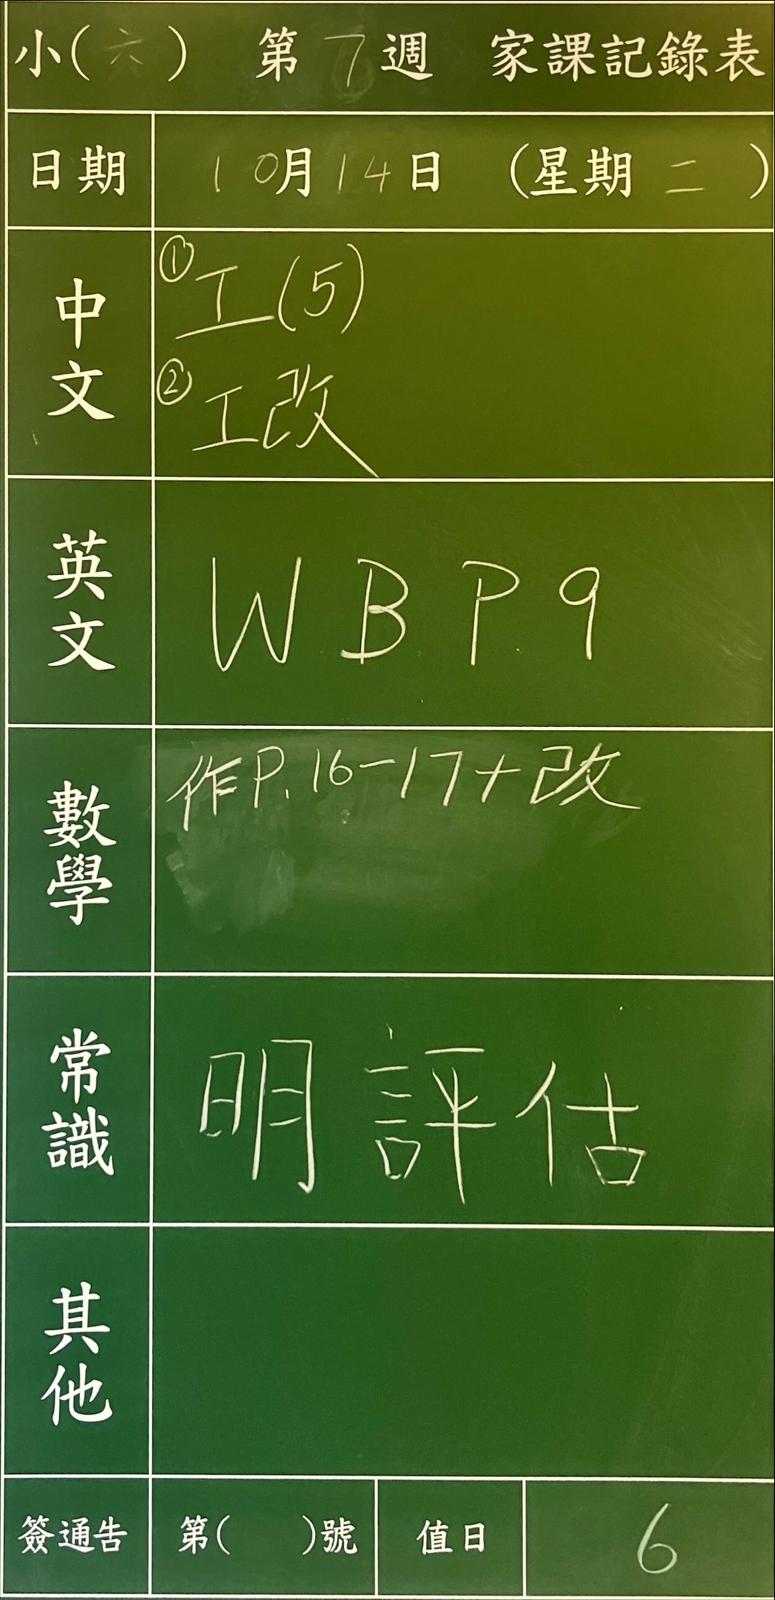 小(六) 第7週 家課記錄表
日期 10月14日 (星期二)
中文
①工(5)
②工改
英文
WB P.9
數學
作P.16-17+改
常識
明評估
其他
簽通告 第( )號 值日 6